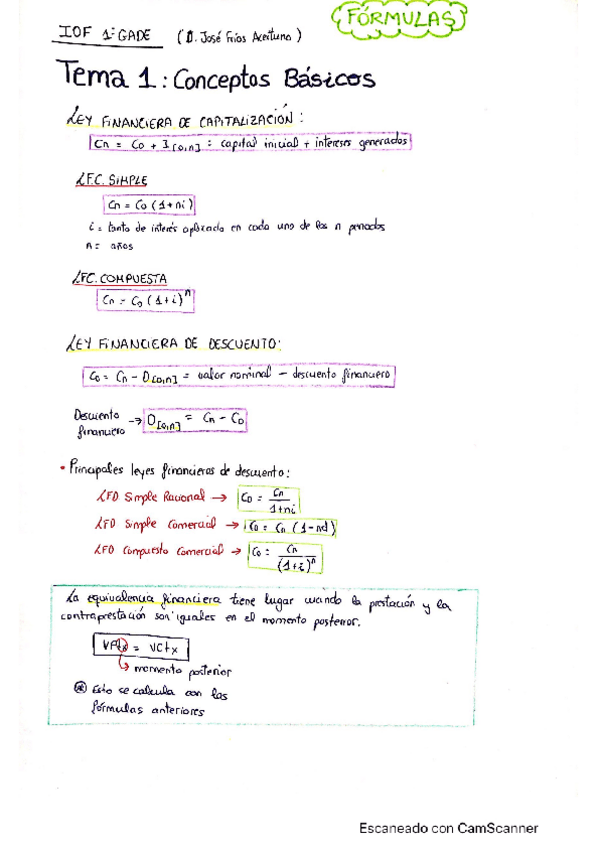 FÓRMULAS
IOF 1º GADE (D. José Frías Aceituno)
Tema 1: Conceptos Básicos
LEY FINANCIERA DE CAPITALIZACIÓN:
Cn = Co + I[o,n] = capital inicial + intereses generados
LFC. SIMPLE
Cn = Co (1+ni)
i = tanto de interés aplicada en cada uno de los n periodos
n = años
LFC. COMPUESTA
Cn = Co (1+i)^n
LEY FINANCIERA DE DESCUENTO:
Co = Cn - D[o,n] = valor nominal - descuento financiero
Descuento financiero → D[o,n] = Cn - Co
• Principales leyes financieras de descuento:
LFD Simple Racional → Co = Cn / 1+ni
LFD Simple Comercial → Co = Cn (1-nd)
LFD Compuesto Comercial → Co = Cn / (1+i)^n
La equivalencia financiera tiene lugar cuando la prestación y la
contraprestación son iguales en el momento posterior.
VPtx = VCtx
↳ momento posterior
⊛ Esto se calcula con las
fórmulas anteriores
Escaneado con CamScanner